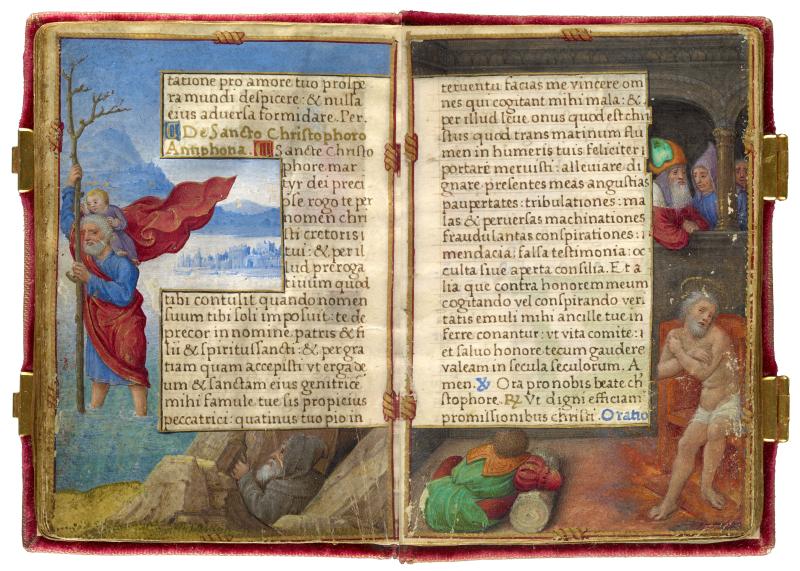 tatione pro amore tuo prospe
ra mundi despicere: & nulla
eius aduersa formidare. Per.
De Sancto Christophoro
Antiphona. Sancte Christo
phore mar
tyr dei preci
ose rogo te per
nomen chri
sti cretoris i
tui: & per il
lud preroga
tiuum quod
tibi contulit quando nomen
suum tibi soli imposuit: te de
precor in nomine patris & fi
lii & spiritussancti: & per gra
tiam quam accepisti vt erga de
um & sanctam eius genitrice
mihi famule tue sis propicius
peccatrici: quatinus tuo pio in
teruentu facias me vincere om
nes qui cogitant mihi mala: &
per illud leue onus quod est chri
stus quod trans marinum flu
men in humeris tuis feliciter i
portare meruisti: alleuiare di
gnare presentes meas angustias
paupertates: tribulationes: ma
las & peruersas machinationes
fraudulantas conspirationes: i
mendacia: falsa testimonia: oc
culta siue aperta consilia. Et a
lia que contra honorem meum
cogitando vel conspirando veri
tatis emuli mihi ancille tue in
ferre conantur: vt vita comite: i
et saluo honore tecum gaudere
valeam in secula seculorum. A
men. Ora pro nobis beate ch
stophore. Vt digni efficiam
promissionibus christi. Oratio